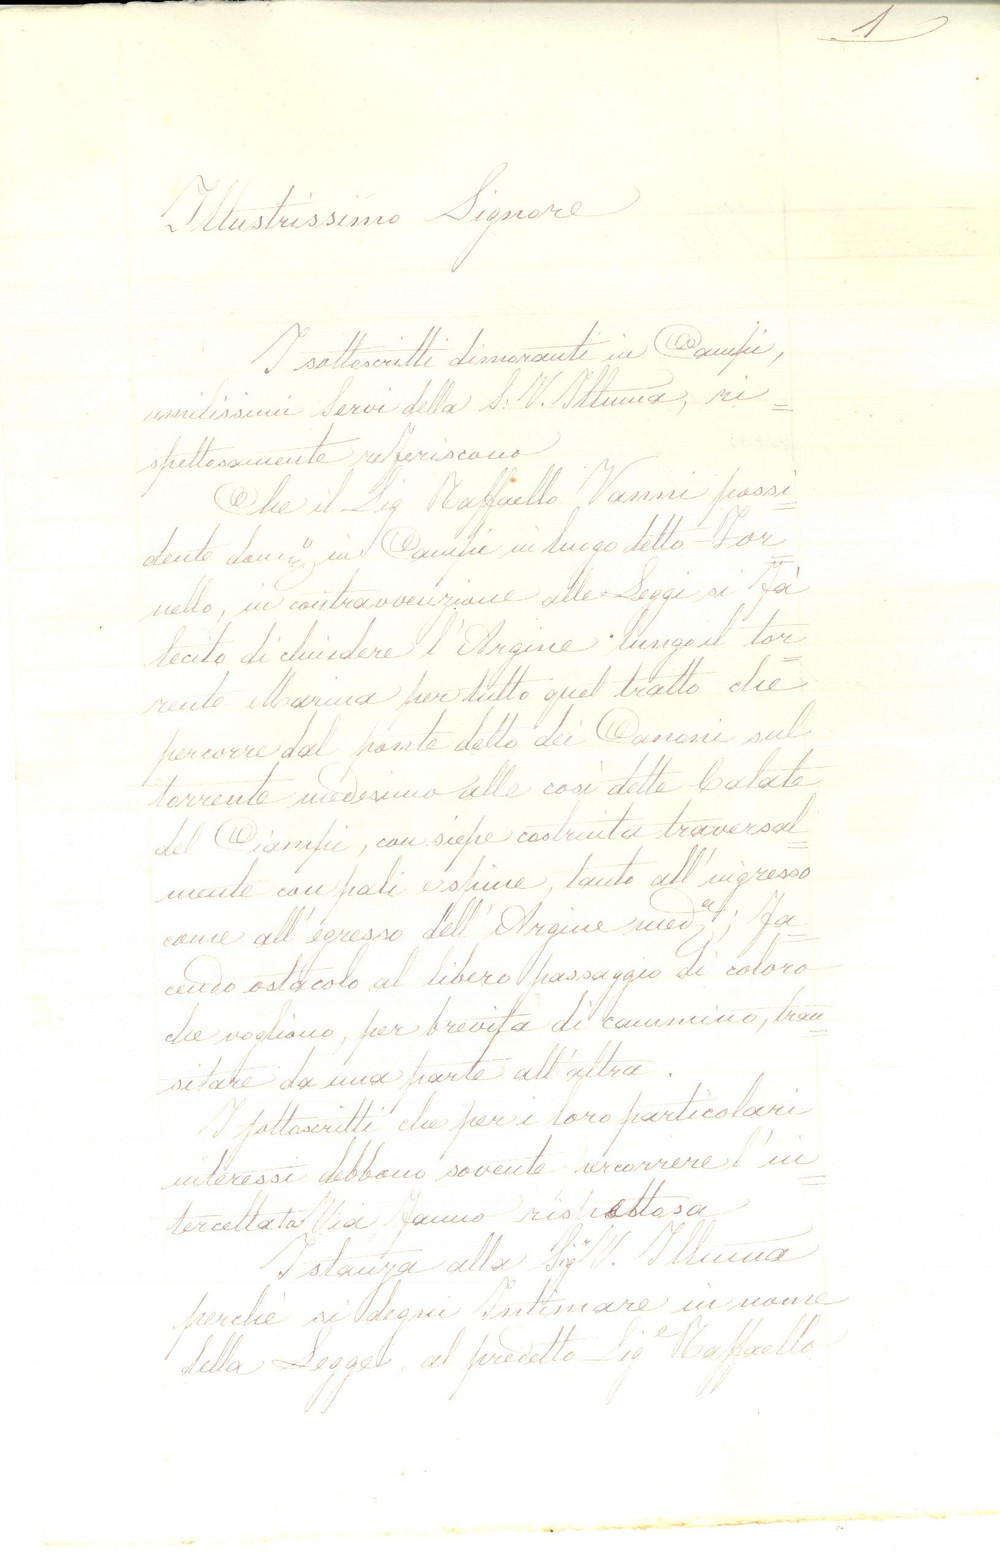 1
Illustrissimo Signore
I sottoscritti dimoranti in Campi,
umilissimi Servi della S. V. Illuma, ri=
spettosamente referiscono
Che il Sig Raffaello Vanni possi=
dente domo in Campi in luogo detto Tor=
nello, in contravvenzione alle Leggi si fà
lecito di chiudere l'Argine lungo il tor=
rente Marina per tutto quel tratto che
percorre dal ponte detto dei Canoni sul
torrente medesimo alle così dette Calate
del Ciampi, con siepe costruita traversal=
mente con pali e spine, tanto all'ingresso
come all'egresso dell'Argine meda; fa=
cendo ostacolo al libero passaggio di coloro
che vogliono, per brevità di cammino, tran=
sitare da una parte all'altra.
I sottoscritti che per i loro particolari
interessi debbono sovente percorrere l'in=
tercettata Via, fanno rispettosa
Istanza alla Sigr V. Illuma
perchè si degni Intimare in nome
della Legge, al predetto Sige Raffaello